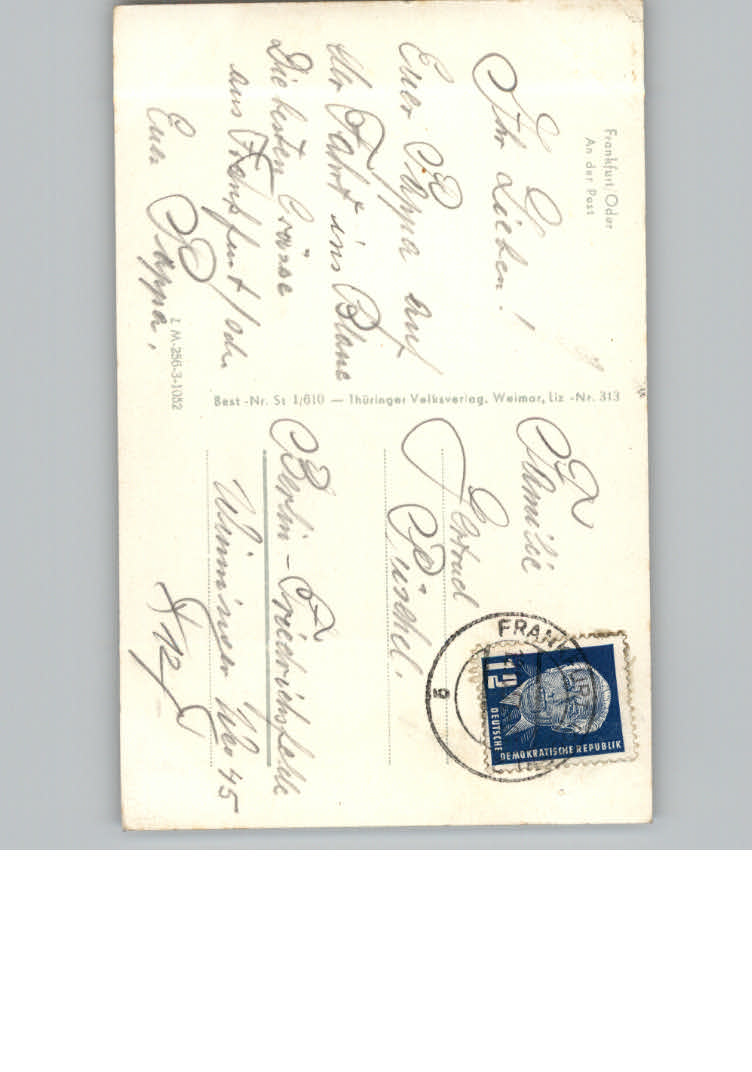 Frankfurt/Oder
An der Post
Ihr Lieben!
Euer Pappa auf
der Fahrt ins Blaue
Die besten Grüsse
aus Frankfurt/Oder
Euer Pappa.
L M-256-3-1052
Best.-Nr. St 1/610 — Thüringer Volksverlag, Weimar, Liz.-Nr. 313
Familie
Gertrud
Püschel.
Berlin-Friedrichsfelde
Weg 45
FRANKFURT
g
12
DEUTSCHE DEMOKRATISCHE REPUBLIK